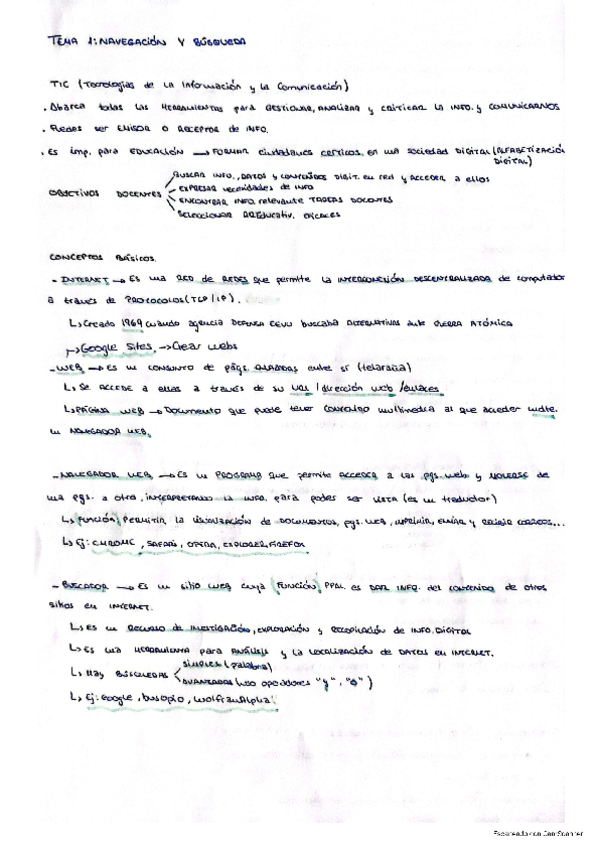 TEMA 1: NAVEGACIÓN Y BÚSQUEDA
TIC (Tecnologías de la Información y la Comunicación)
· Abarca todas las HERRAMIENTAS para GESTIONAR, ANALIZAR y CRITICAR la INFO. y COMUNICARNOS
· Puedes ser EMISOR O RECEPTOR de INFO.
· Es imp. para EDUCACIÓN → FORMAR ciudadanos CRÍTICOS en una sociedad DIGITAL (ALFABETIZACIÓN
DIGITAL)
BUSCAR INFO., DATOS y CONTENIDOS DIGIT. en red y ACCEDER a ellos
EXPRESAR necesidades de INFO
OBJETIVOS DOCENTES
ENCONTRAR INFO. relevante TAREAS DOCENTES
SELECCIONAR EFICACES
CONCEPTOS BÁSICOS.
- INTERNET → Es una RED de REDES que permite la INTERCONEXIÓN DESCENTRALIZADA de computador
a través de PROTOCOLOS (TCP/IP).
↳ Creado 1969 cuando agencia DEFENSA EEUU buscaba ALTERNATIVAS ante GUERRA ATÓMICA
↳ Google Sites. → Crear webs
- WEB → Es un CONJUNTO de págs. entre sí (telaraña)
↳ Se ACCEDE a ellas a través de su URL / dirección web / enlaces
↳ PÁGINA WEB → Documento que puede tener CONTENIDO multimedia al que acceder mdte.
un NAVEGADOR WEB.
- NAVEGADOR WEB → Es un PROGRAMA que permite ACCEDER a las pgs. web y MOVERSE de
una pgs. a otra, INTERPRETANDO la INFO. para poder ser VISTA (es un traductor)
↳ Función: PERMITIR la VISUALIZACIÓN de DOCUMENTOS, pgs. WEB, IMPRIMIR, ENVIAR y RECIBIR CORREOS...
↳ Ej: CHROME, SAFARI, OPERA, EXPLORER, FIREFOX
- BUSCADOR → Es un sitio WEB cuya FUNCIÓN PPAL. es DAR INFO. del CONTENIDO de otros
sitios en INTERNET.
↳ Es un RECURSO de INVESTIGACIÓN, EXPLORACIÓN y RECOPILACIÓN de INFO. DIGITAL
↳ Es una HERRAMIENTA para ANÁLISIS y la LOCALIZACIÓN de DATOS en INTERNET.
simples (palabra)
↳ Hay BÚSQUEDAS
AVANZADAS (uso operadores "y", "o")
↳ Ej: Google, buscopio, WolframAlpha.
Escaneado con CamScanner